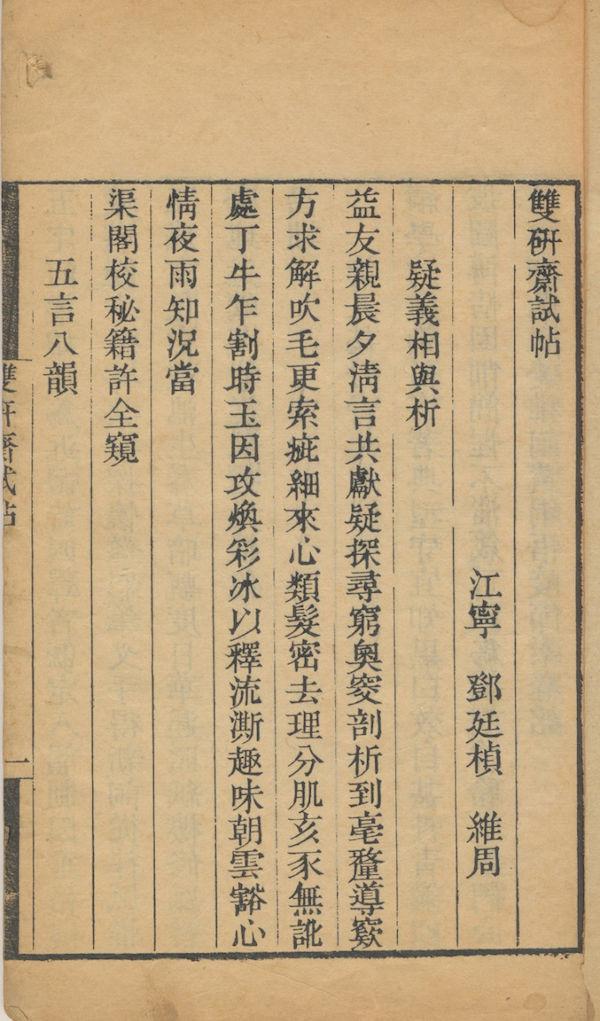 雙硏齋試帖
江寧 鄧廷楨 維周
疑義相與析
益友親晨夕淸言共獻疑探尋窮奧窔剖析到毫釐導窾
方求解吹毛更索疵細來心類髮密去理分肌亥豕無訛
處丁牛乍割時玉因攻煥彩冰以釋流澌趣味朝雲豁心
情夜雨知況當
渠閣校秘籍許全窺
五言八韻
雙硏齋試帖
一